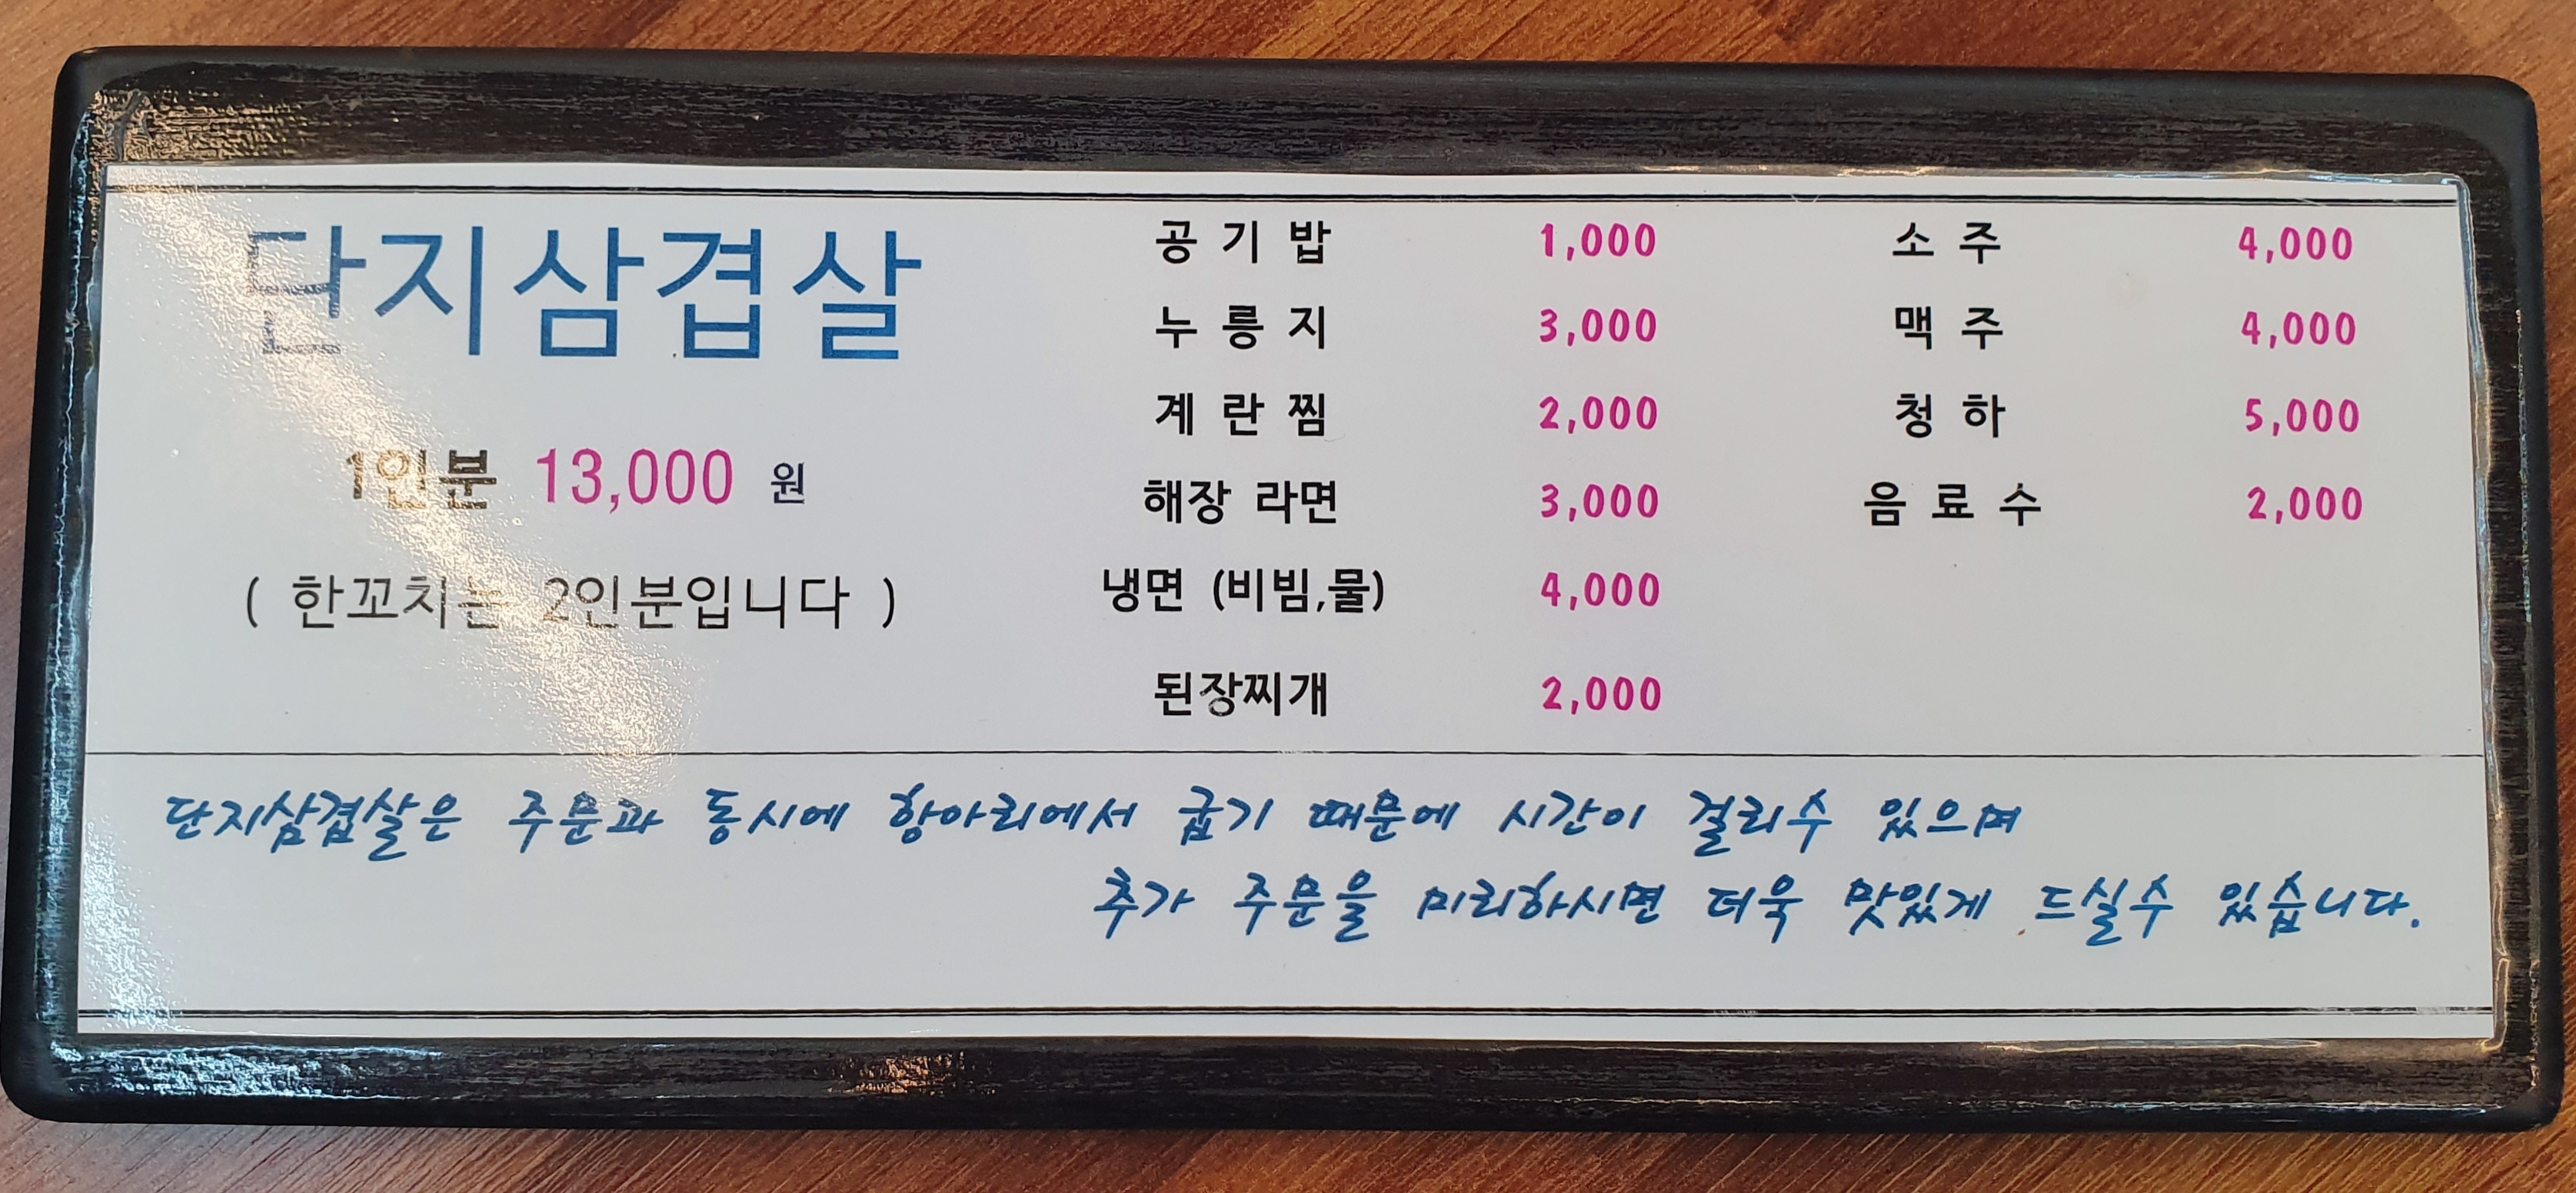 단지삼겹살
1인분 13,000 원
( 한꼬치는 2인분입니다 )
공 기 밥 1,000
누 룽 지 3,000
계 란 찜 2,000
해장 라면 3,000
냉면 (비빔,물) 4,000
된장찌개 2,000
소 주 4,000
맥 주 4,000
청 하 5,000
음 료 수 2,000
단지삼겹살은 주문과 동시에 항아리에서 굽기 때문에 시간이 걸리수 있으며
추가 주문을 미리하시면 더욱 맛있게 드실수 있습니다.